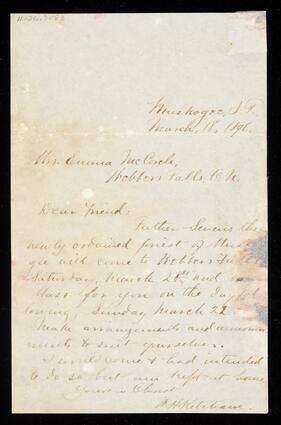 Muskogee, I. T.
March, 18, 1896.
Mrs. Emma
Webbers Falls, C. N.
Dear Friend:
Father the
newly ordained priest of
gee will come to Webbers Falls
Saturday, March and
for you on the day fol
lowing, Sunday March 22
Make arrangements and
to suit yourselves.
I would come & had intended
to do so but am kept at home
Yours in Christ
W. H. Ketcham